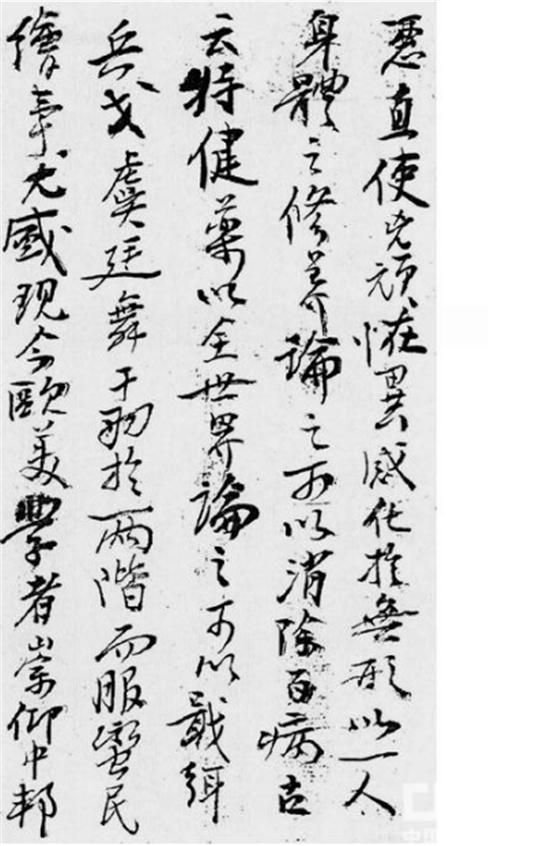 惡直使兇頑恠異感化於無形以一人
身體之修養論之可以消除百病古
云特健藥以全世界論之可以戢弭
兵戈虞廷舞干羽於兩階而服蠻民
繪事尤感現今歐美學者崇仰中邦